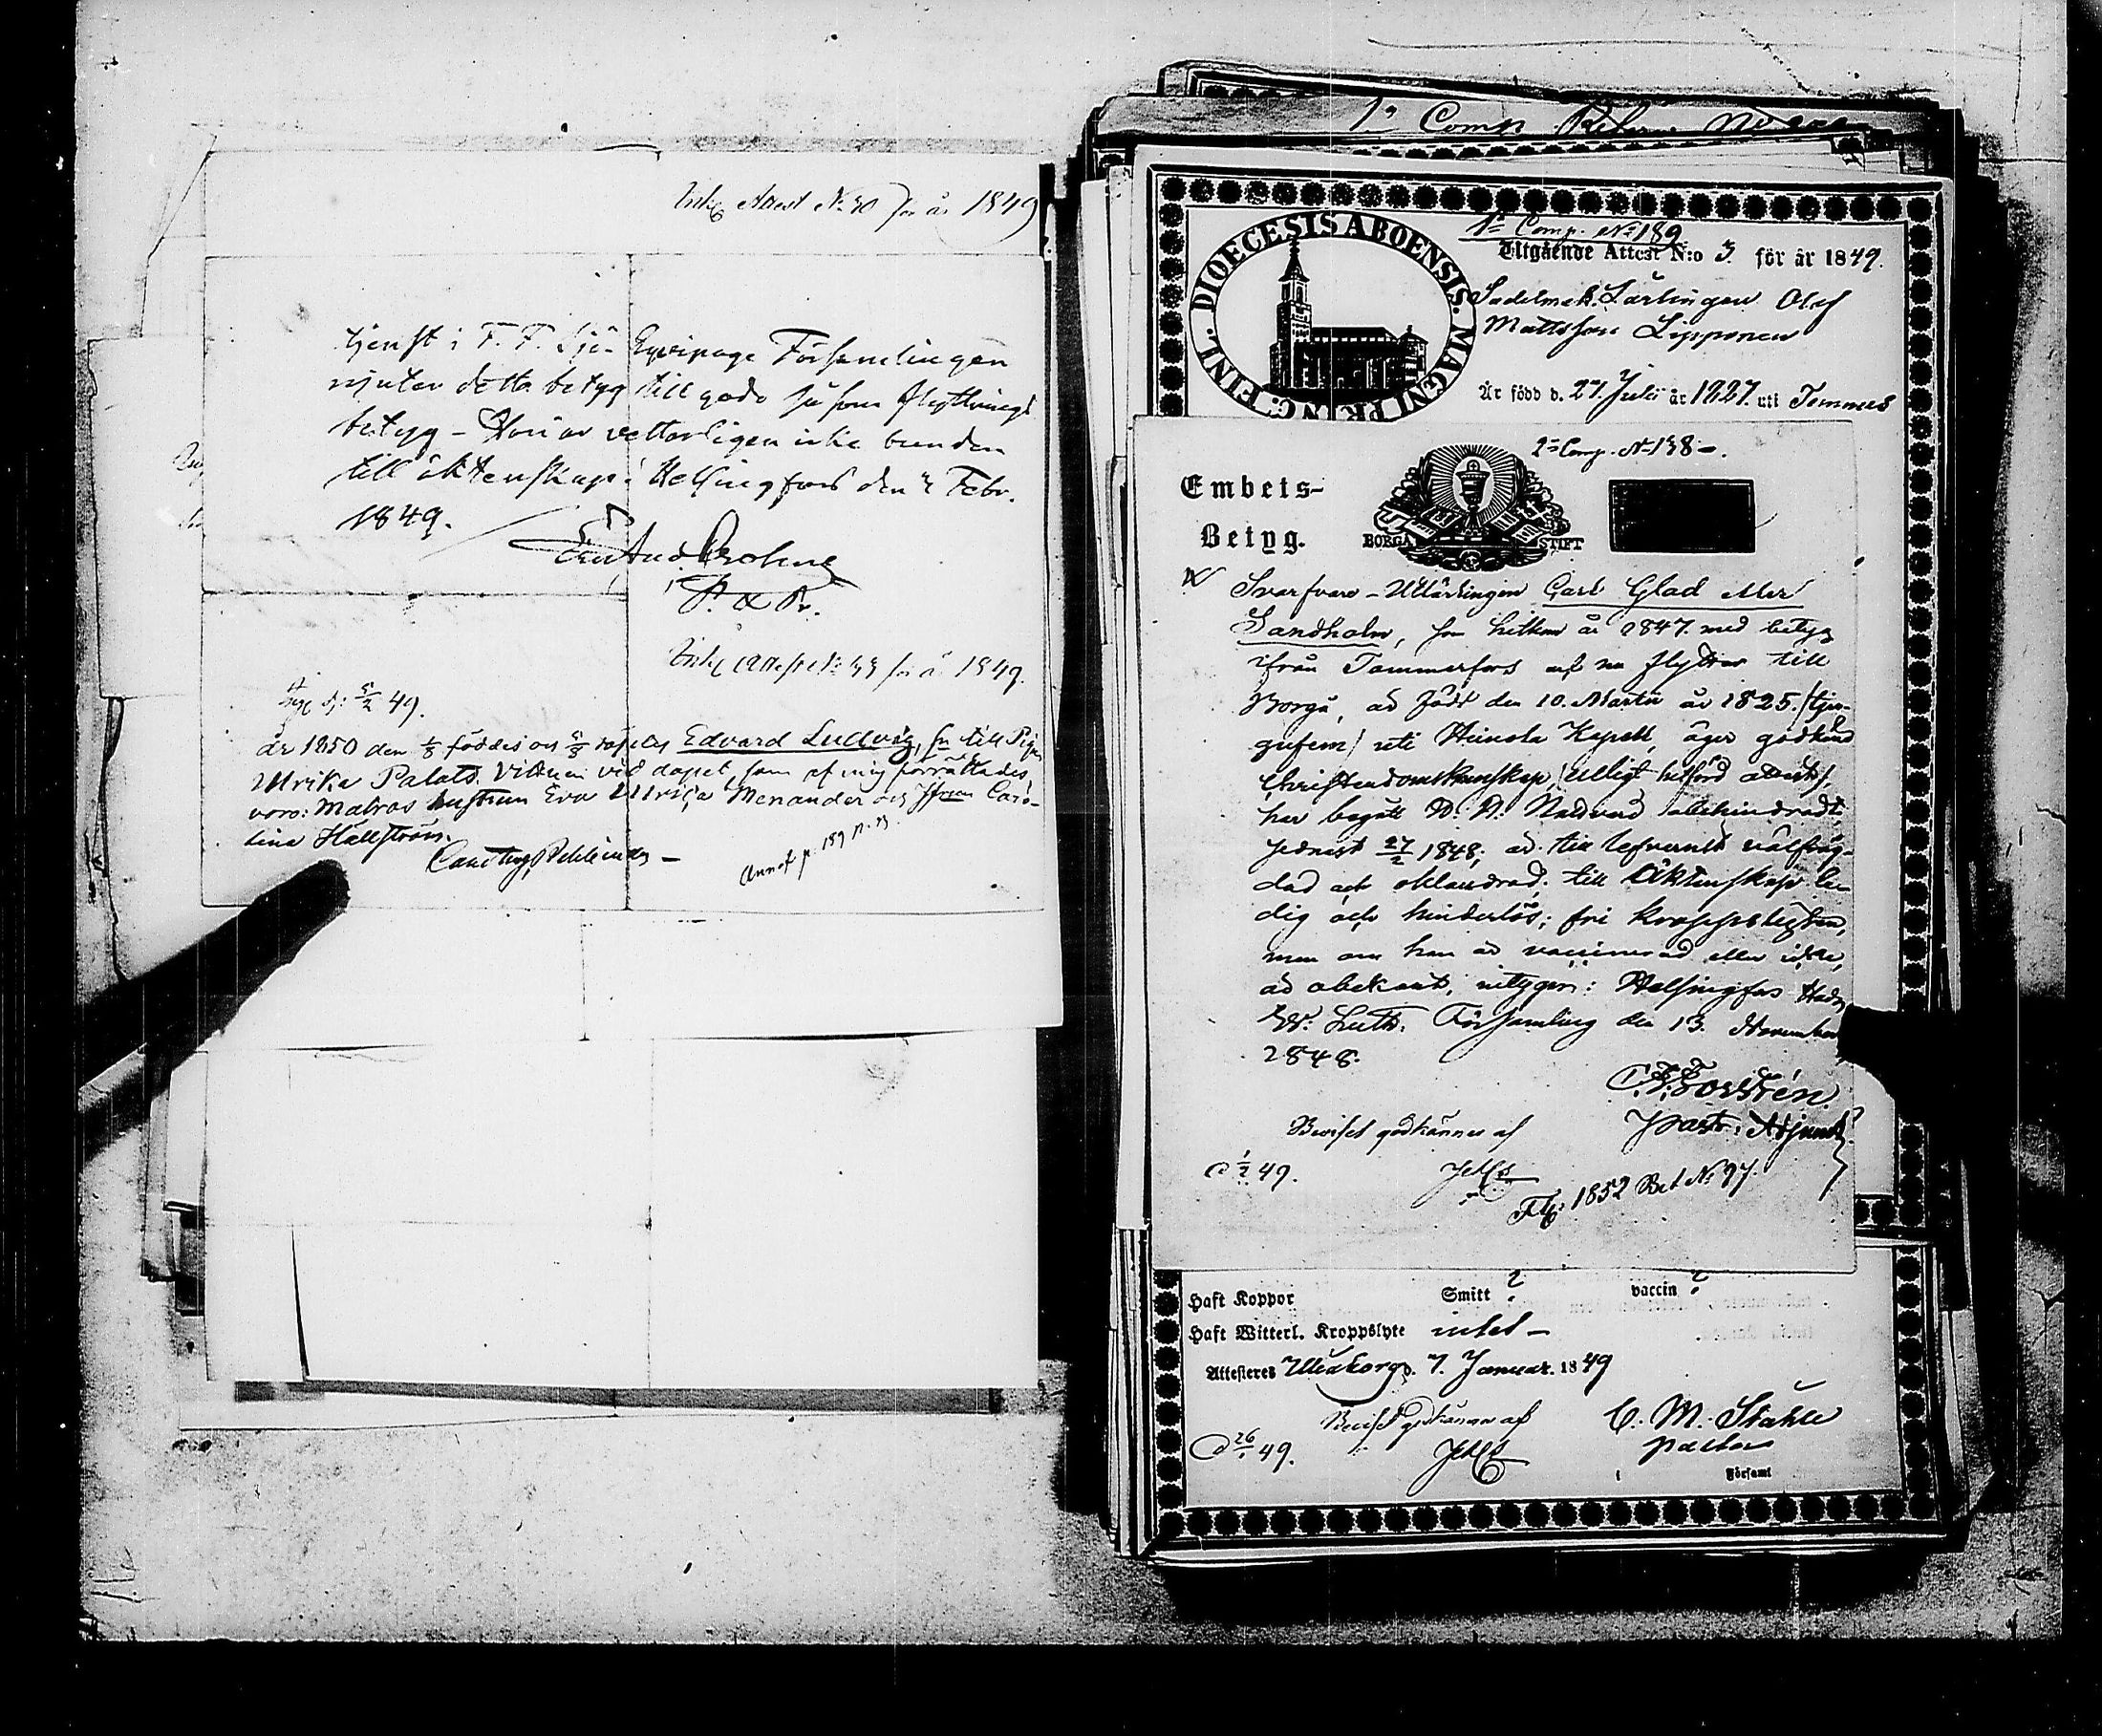 Attest No 30 för år 1849
tjenst i F. F. Sjö-Equipage Församlingen
njuter detta betyg till godo såsom flyttnings
betyg – Hon är vetterligen icke bunden
till äktenskap: Helsingfors den Febr.
1849.
P. & Pr.
för år 1849.
49.
år 1850 den 1/8 föddes och 5/8 döptes Edvard Ludvig, son till Pigan
Ulrika Palats. Vittnen vid dopet, som af mig förrättades,
voro: Matros hustrun Eva Ulrika Menander och Jfrun Caro-
lina Hällström.
Annot. p. 189 n. 23.
1a Comp.
DIOECESIS ABOENSIS. MAGNI PRINC. FINL.
1a Comp. No 189
Utgående Attest N:o 3. för år 1849.
Sadelmak. Lärlingen Olof
Mattsson Lipponen
Är född d. 27. Julii år 1827. uti Temmes
2a Comp. No 138 –.
Embets-
Betyg.
BORGÅ STIFT
Svarfvare-Utlärlingen Carl Glad eller
Sandholm, som hitkom år 1847. med betyg
ifrån Tammerfors af en flyttar till
Borgå, är född den 10. Martii år 1825. /tju-
gufem/ uti Heinola Kapell, äger godkänd
Christendomskunskap, /enligt hitförd attest/,
har begått H. H. Nattvard obehindradt,
sednast 27/2 1848; är till lefvernet välfräj-
dad och oklandrad; till Äktenskap le-
dig och hinderlös; fri kroppslyten,
men om han är vaccinerad eller icke,
är obekant, intygar: Helsingfors Stads
Ev: Luth: Församling den 13. November
1848.
C. F. Forstén.
Past: Adjunkt.
Beviset godkännes af
d 1/2 49.
Flg: 1852 Bet No 97.
Haft Koppor Smitt ? vaccin ?
Haft Witterl. Kroppslyte intet –
Attesteres Uleåborg d. 7. Januar. 1849
Beviset godkännes af C. M. Ståhle
d 26/1 49. pastor
Församl